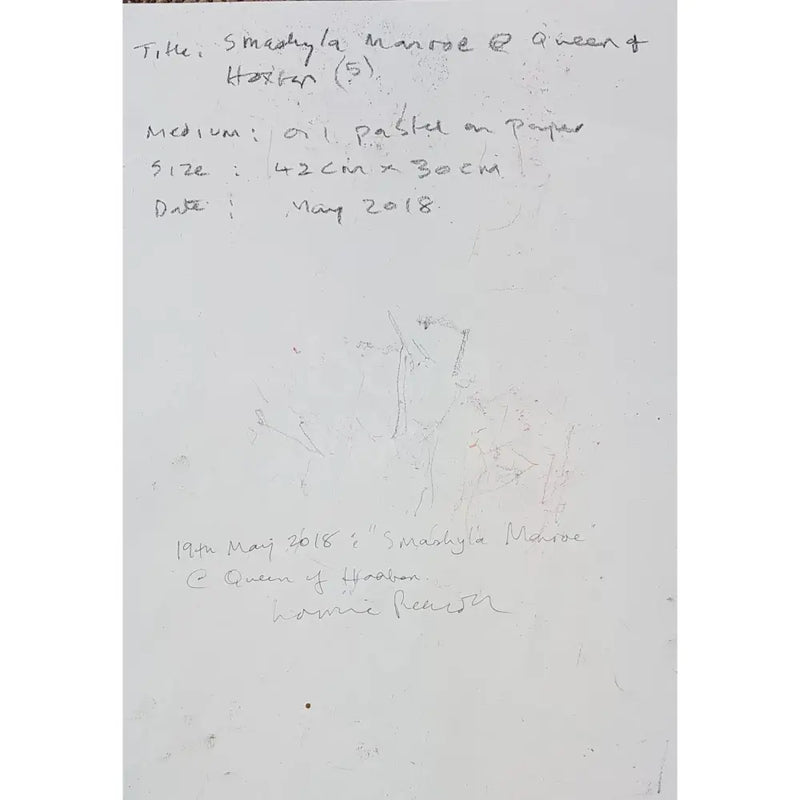 Title: Smashyla Monroe @ Queen of
Hoxton (5)
Medium: oil pastel on paper
Size : 42cm x 30cm
Date : May 2018
19th May 2018 : "Smashyla Monroe"
@ Queen of Hoxton.